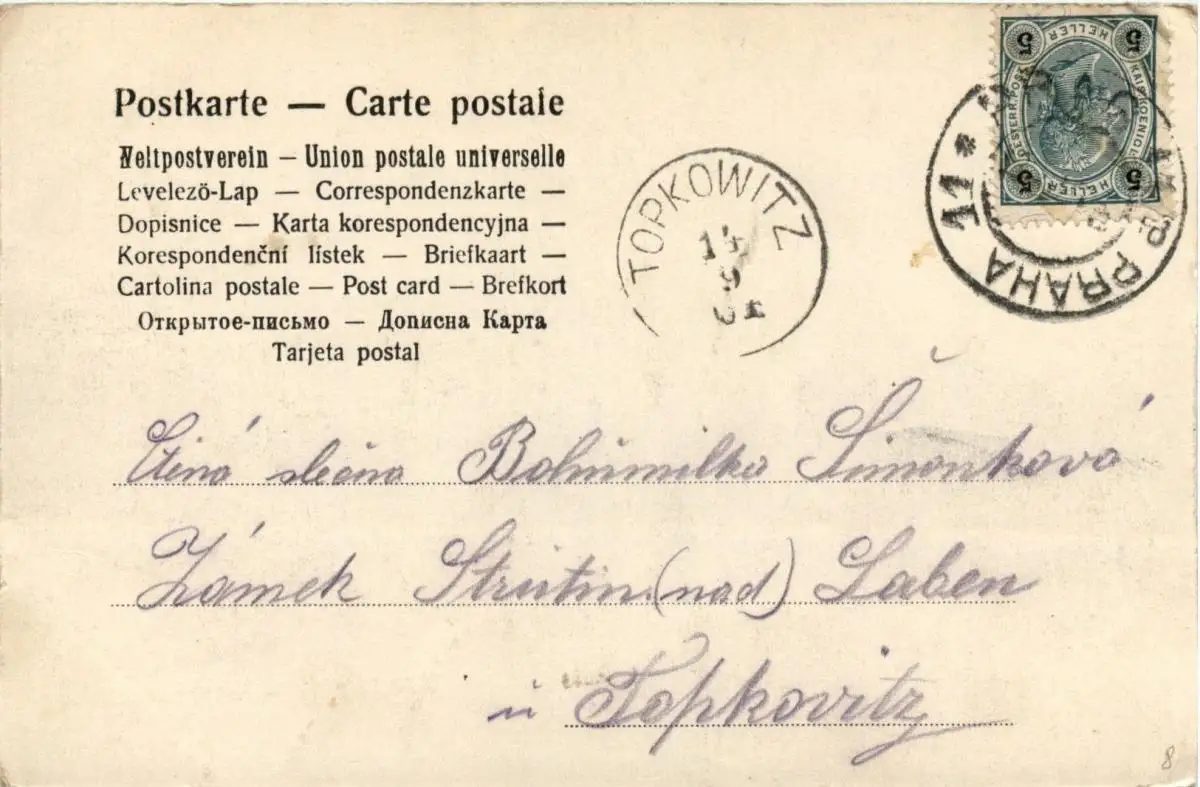 Postkarte — Carte postale
Weltpostverein – Union postale universelle
Levelező-Lap — Correspondenzkarte —
Dopisnice — Karta korespondencyjna —
Korespondenční lístek — Briefkaart —
Cartolina postale — Post card — Brefkort
Открытое-письмо — Дописна Карта
Tarjeta postal
5 HELLER 5
5 HELLER 5
PRAHA 11 *
TOPKOWITZ
14
9
01
Ctěná slečna Bohumilka Šimonková
Zámek (nad) Laben
u Topkovitz
8